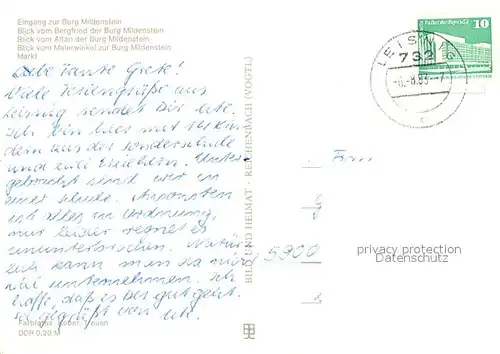 Eingang zur Burg Mildenstein
Blick vom Bergfried der Burg Mildenstein
Blick vom Altan der Burg Mildenstein
Blick vom Malerwinkel zur Burg Mildenstein
Markt
Liebe Tante Grete!
Viele Feriengrüße aus
Leisnig sendet Dir Ute.
Ich bin hier mit 16 Kin
dern aus der Sonderschule
und zwei Erziehern. Unter-
gebracht sind wir in
einer Schule. Ansonsten
ist alles in Ordnung,
nur leider regnet es
ununterbrochen. Natür
lich kann man da nicht
viel unternehmen. Ich
hoffe, daß es Dir gut geht.
Sei gegrüßt von Ute.
Farbfotos
DDR 0,20 M
BILD UND HEIMAT · REICHENBACH (VOGTL)
Palast der Republik
10
LEISNIG
732
Frau
5900
privacy protection
Datenschutz